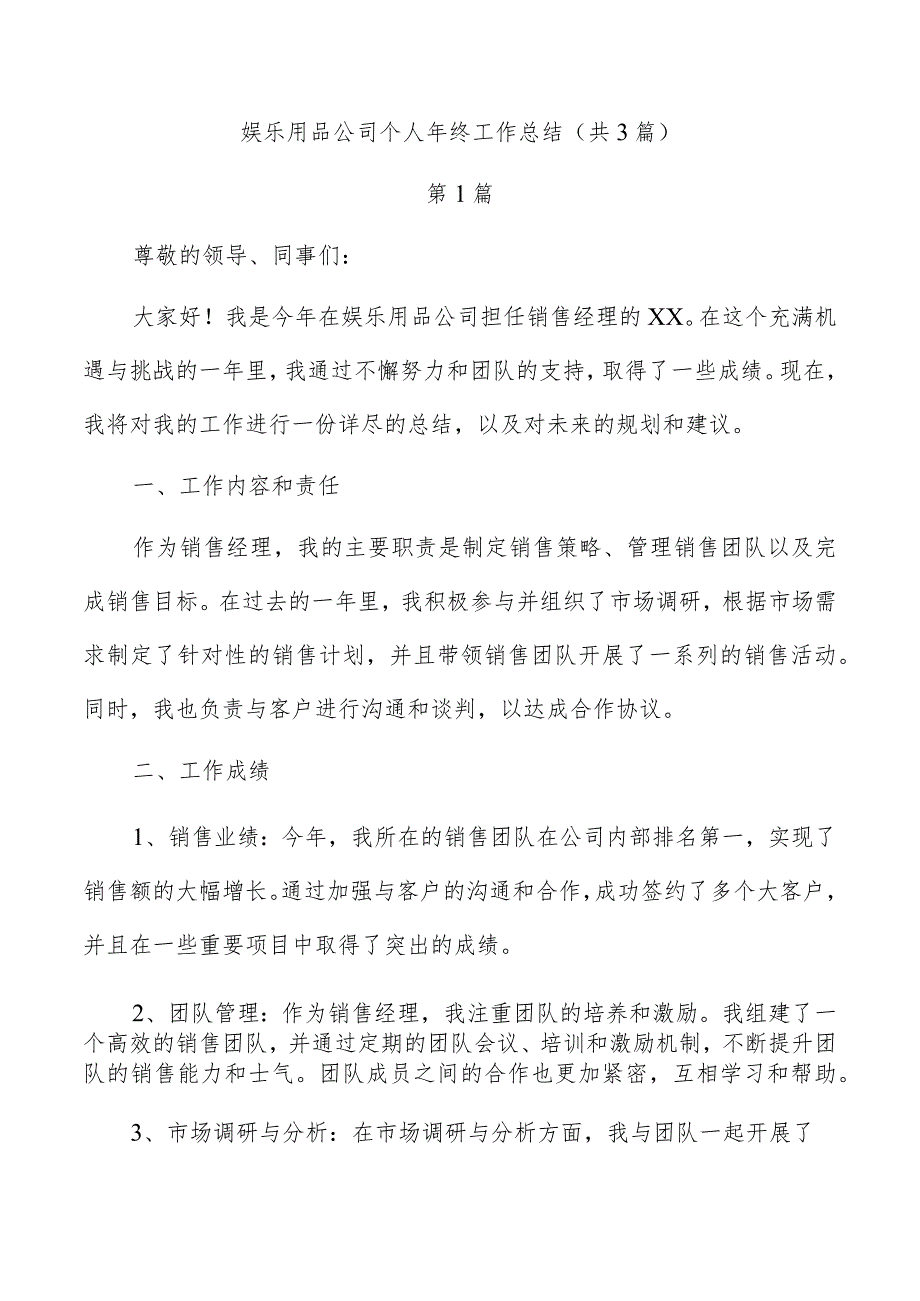 娱乐用品公司个人年终工作总结（共3篇）
第1篇
尊敬的领导、同事们：
大家好！我是今年在娱乐用品公司担任销售经理的XX。在这个充满机
遇与挑战的一年里，我通过不懈努力和团队的支持，取得了一些成绩。现在，
我将对我的工作进行一份详尽的总结，以及对未来的规划和建议。
一、工作内容和责任
作为销售经理，我的主要职责是制定销售策略、管理销售团队以及完
成销售目标。在过去的一年里，我积极参与并组织了市场调研，根据市场需
求制定了针对性的销售计划，并且带领销售团队开展了一系列的销售活动。
同时，我也负责与客户进行沟通和谈判，以达成合作协议。
二、工作成绩
1、销售业绩：今年，我所在的销售团队在公司内部排名第一，实现了
销售额的大幅增长。通过加强与客户的沟通和合作，成功签约了多个大客户，
并且在一些重要项目中取得了突出的成绩。
2、团队管理：作为销售经理，我注重团队的培养和激励。我组建了一
个高效的销售团队，并通过定期的团队会议、培训和激励机制，不断提升团
队的销售能力和士气。团队成员之间的合作也更加紧密，互相学习和帮助。
3、市场调研与分析：在市场调研与分析方面，我与团队一起开展了